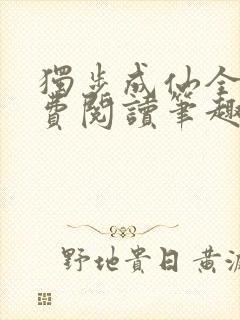 獨步成仙全
費閱讀筆趣
野地貴日黃源